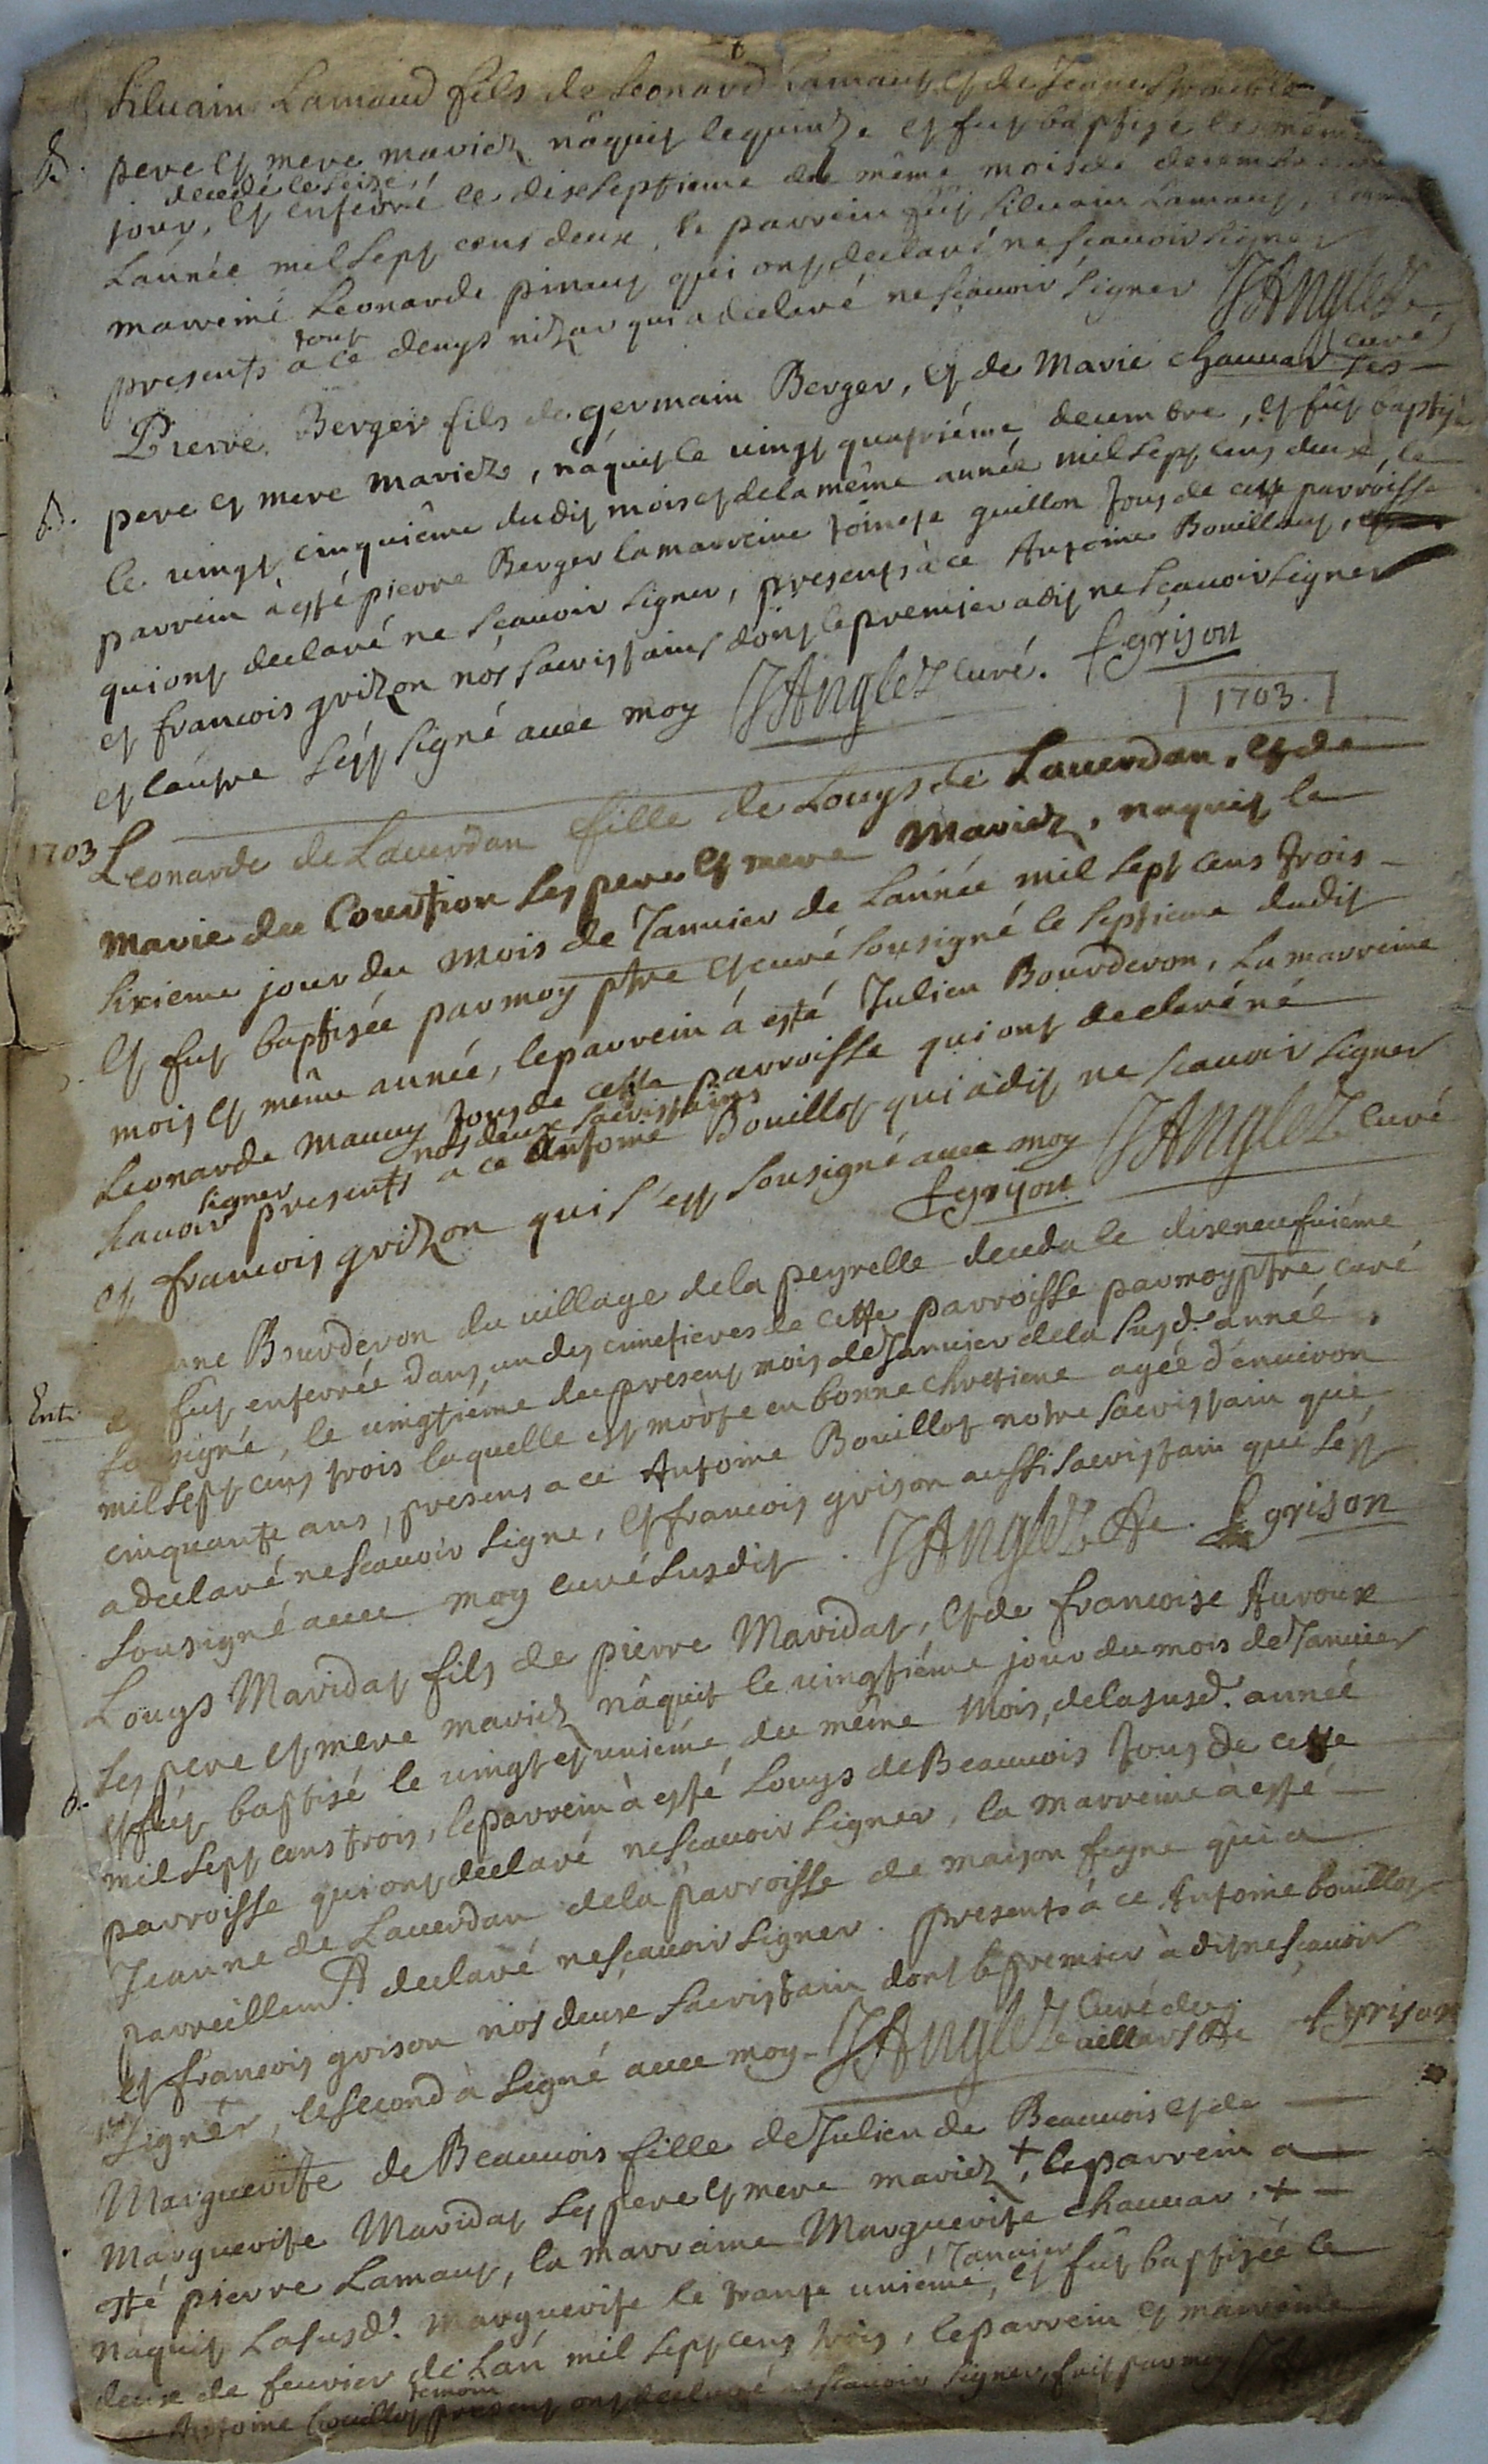 Siluain Lamaud fils de Leonard Lamaut et de Jeanne
B. pere et mere mariez nâquit le quinze et fut baptisé le même
decedé le seize
jour, et enterré le dixseptieme du même mois de decembre
L'année mil sept cens deux, le parrein fut siluain Lamaut,
marreine Leonarde pineut qui ont declaré ne scauoir signer
tout
presents a ce denys nizar qui a declaré ne scauoir signer JAnglez
curé
Pierre Berger fils de germain Berger, et de Marie chauuar ses
B. pere et mere mariez, nâquit le uingt quatriéme decembre, et fut baptisé
le uingt cinquiéme dudit mois et de la même année mil sept cens deux, le
parrein à esté pierre Berger la marreine toinete guillon tous de cette parroisse
qui ont declaré ne scauoir signer, presents à ce Antoine Bouillaut,
et francois grizon nos sacristains dont le premier a dit ne scauoir signer
et lautre s'est signé auec moy JAnglez curé. f grison
1703.
1703 Leonarde de Lauerdan fille de Louys de Lauerdan, et de
marie du Courtion ses pere et mere mariez, naquit le
sixieme jour du mois de Januier de l'année mil sept cens trois
et fut baptisée par moy ptre et curé sousigné le septieme dudit
mois et même année, le parrein á esté Julien Bourderon, la marreine
Leonarde mauuy tous de cette parroisse qui ont declaré né
nos deux sacristains
signer
scauoir presents a ce Antoine Bouillot qui a dit ne scauoir signer
et francois grizon qui s'est sousigné auec moy JAnglez curé
f grison
nne Bourderon du uillage de la peyrelle deceda le dixneufuiéme
Ent. et fut enterrée dans un des cimetieres de cette parroisse par moy ptre curé
sousigné, le uingtiéme du present mois de Januier de la susd. année
mil sept cens trois laquelle est morte en bonne chretiene agée d'enuiron
cinquante ans, presens a ce Antoine Bouillot notre sacristain qui
a declaré ne scauoir signe, et francois grison aussi sacristain qui s'est
sousigné auec moy curé susdit. JAnglez f grison
Louys Maridat fils de pierre Maridat, et de francoise Auroux
ses pere et mere mariez nâquit le uingtiéme jour du mois de Januier
B. et fut baptisé le uingt et uniéme du même Mois, de la susd. année
mil sept cens trois, le parrein à esté Louys de Beauuois tous de cette
parroisse qui ont declaré ne scauoir signer, la marreine à esté
Jeanne de Lauerdan de la parroisse de maison feyne qui a
parreillemt declaré ne scauoir signer. presents á ce Antoine bouillot
et francois grison nos deux sacristain dont le premier à dit ne scauoir
signer, le second à signé auec moy JAnglez curé du
f grison
Marguerite de Beauuois fille de Julien de Beauuois et de
Marguerite Maridat ses pere et mere mariez +, le parrein a
esté pierre Lamaut, la marraine Marguerite chauuar. +
Januier
naquit lasusd. Marguerite le trante uniéme, et fut baptisée le
deux de feurier de l'an mil sept cens trois, le parrein et marreine
temoin
Antoine bouillot present ont declaré ne scauoir signer, fait par moy